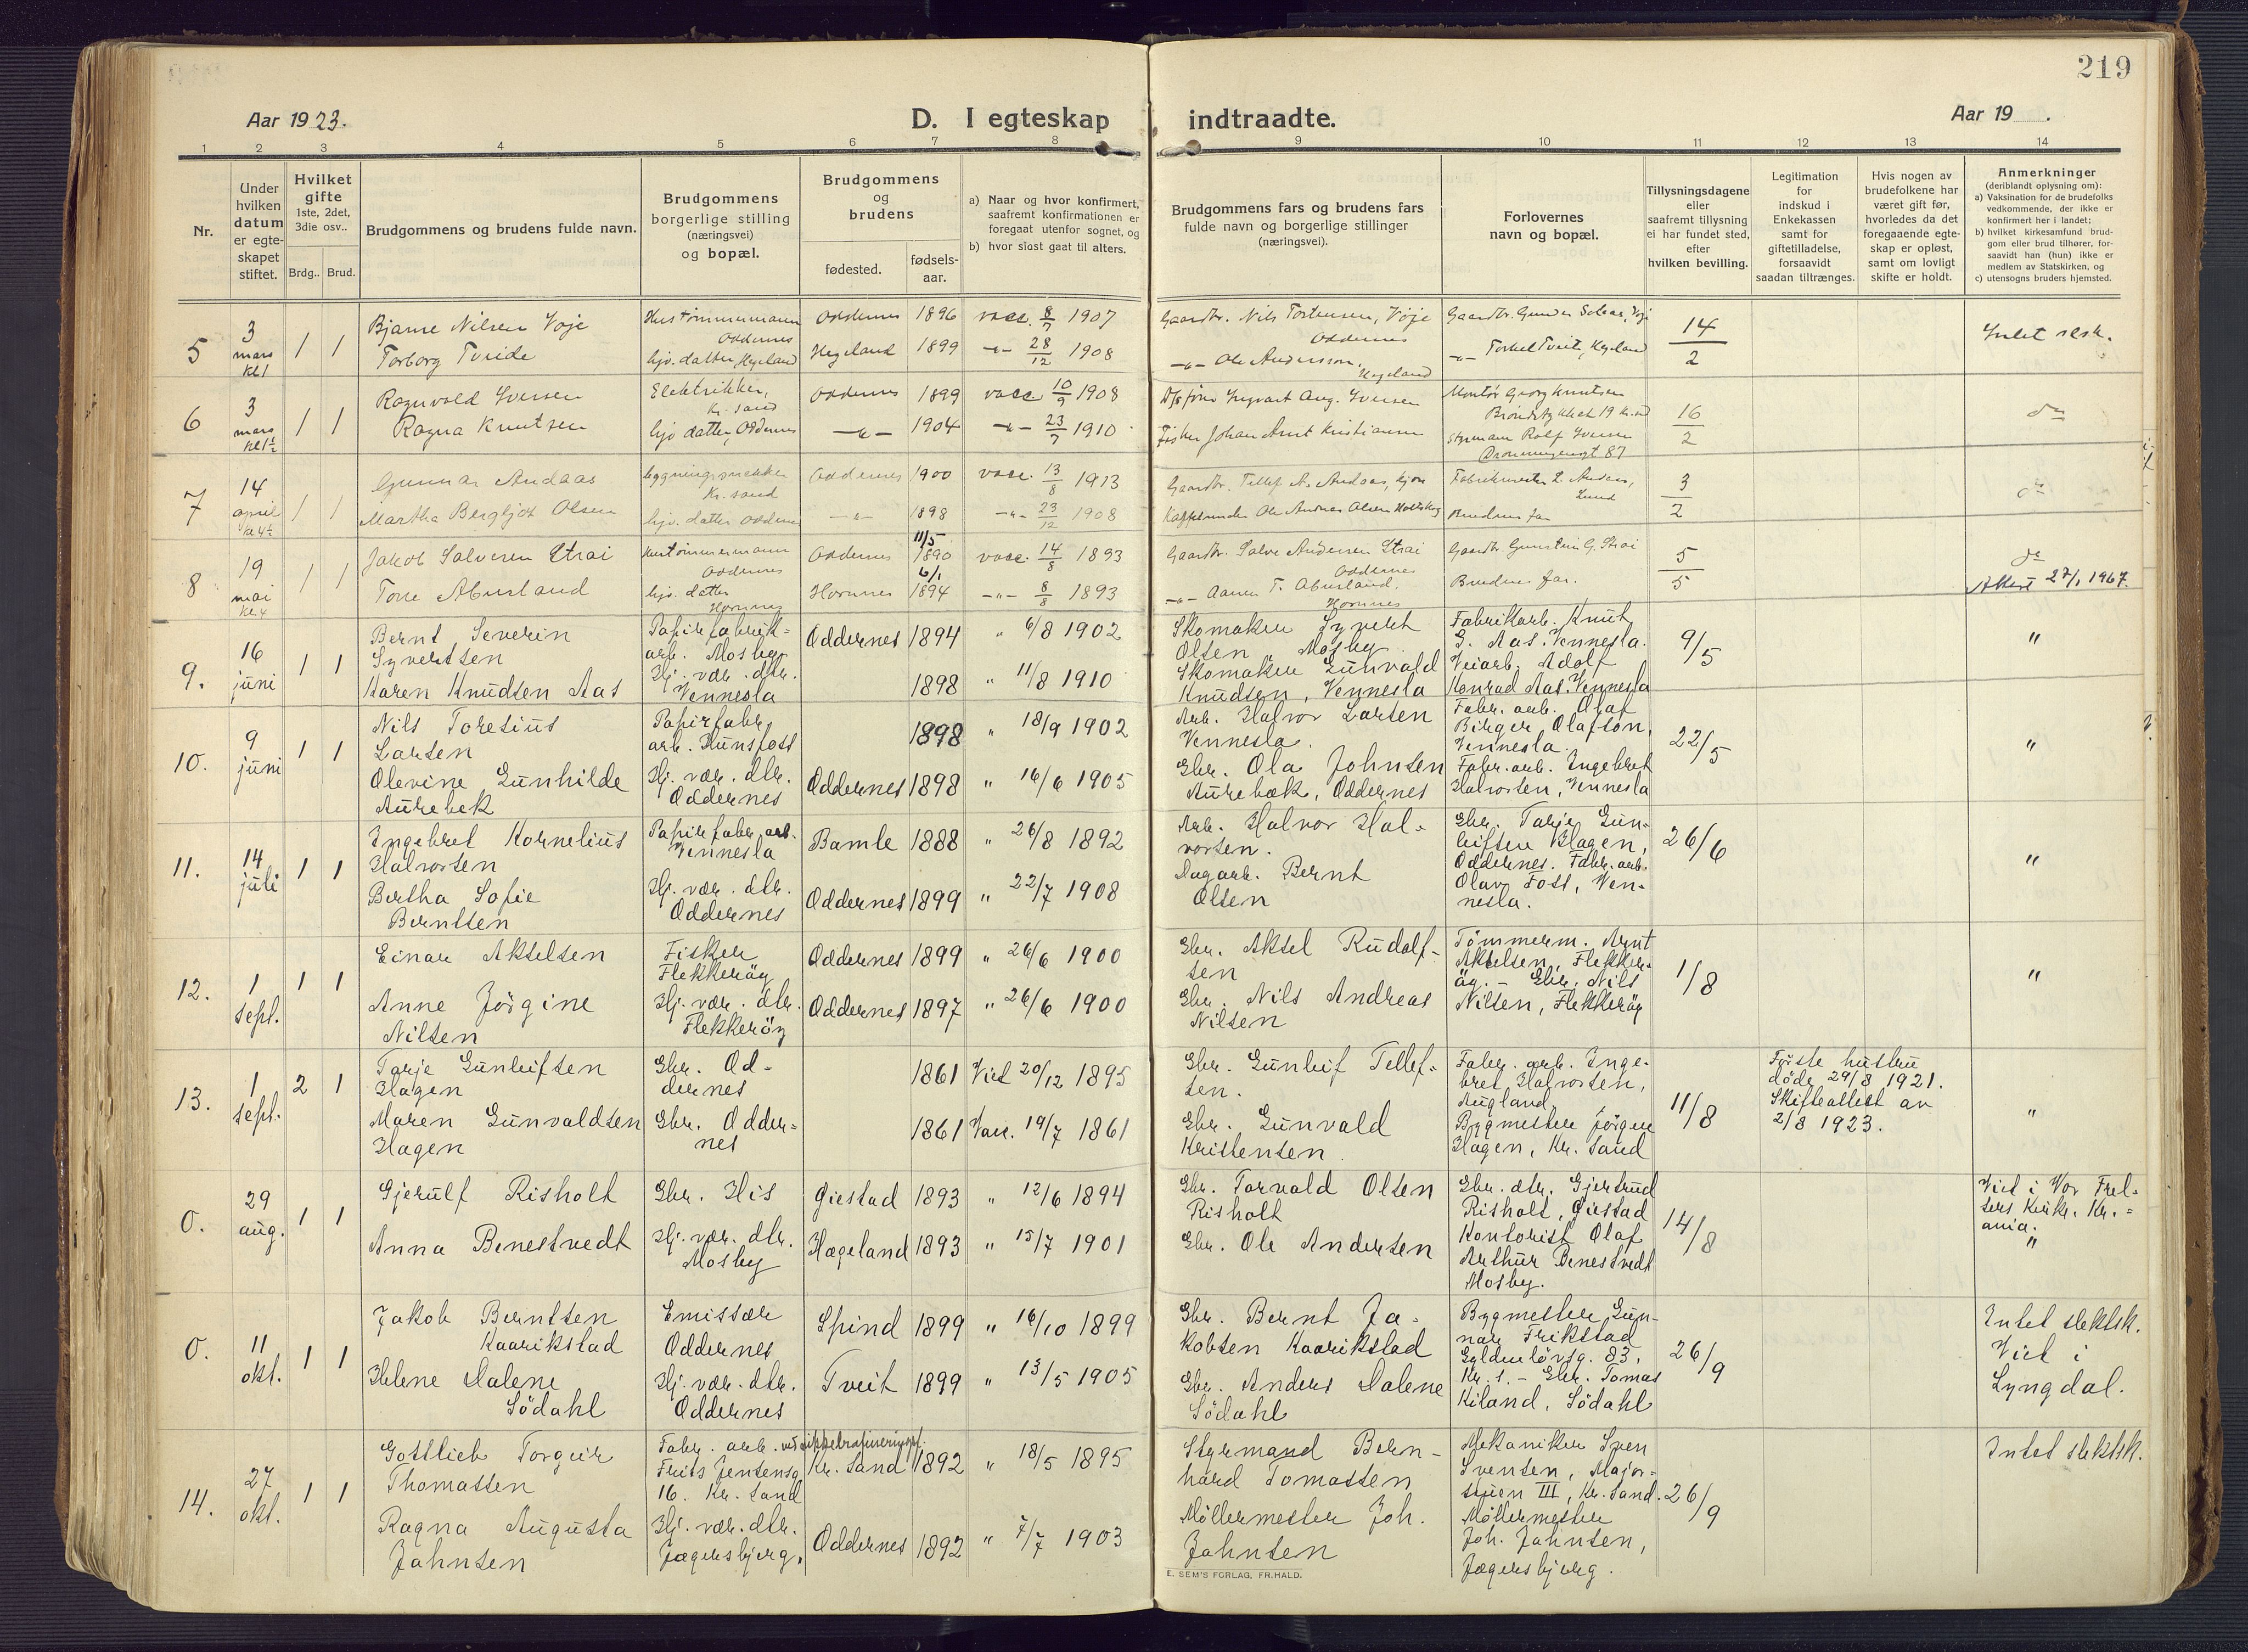 219
Aar 1923.
D. I egteskap indtraadte.
Aar 19 .
1 2 3 4 5 6 7 8 9 10 11 12 13 14
Nr.
Under
hvilken
datum
er egte-
skapet
stiftet.
Hvilket
gifte
1ste, 2det,
3die osv..
Brdg.. Brud.
Brudgommens og brudens fulde navn.
Brudgommens
borgerlige stilling
(næringsvei)
og bopæl.
Brudgommens
og
brudens
fødested.
fødsels-
aar.
a) Naar og hvor konfirmert,
saafremt konfirmationen er
foregaat utenfor sognet, og
b) hvor sidst gaat til alters.
Brudgommens fars og brudens fars
fulde navn og borgerlige stillinger
(næringsvei).
Forlovernes
navn og bopæl.
Tillysningsdagene
eller
saafremt tillysning
ei har fundet sted,
efter
hvilken bevilling.
Legitimation
for
indskud i
Enkekassen
samt for
giftetilladelse,
forsaavidt
saadan tiltrænges.
Hvis nogen av
brudefolkene har
været gift før,
hvorledes da det
foregaaende egte-
skap er opløst,
samt om lovligt
skifte er holdt.
Anmerkninger
(deriblandt oplysning om):
a) Vaksination for de brudefolks
vedkommende, der ikke er
konfirmert her i landet;
b) hvilket kirkesamfund brud-
gom eller brud tilhører, for-
saavidt han (hun) ikke er
medlem av Statskirken, og
c) utensogns bruders hjemsted.
5
3
mars
kl 1
1 1
Bjarne Nilsen Voje
Torborg Tveide
Hustømmermann
Oddernes
hjv. datter, Hegeland
Oddernes 1896 vacc. 8/7 1907
Hegeland 1899 -"- 28/12 1908
Gaardbr. Nils Torkensen, Voje
Oddernes
-"- Ole Andersson,
Hegeland
-"- Torkel Tveit, Hegeland
14/2
Intet slsk.
6
3
mars
kl 1½
1 1
Ragnvald Iversen
Ragna Knutsen
Elektriker,
Kr. sand
hjv datter, Oddernes
Oddernes 1899 vacc 10/9 1908
-"- 1904 -"- 23/7 1910
Ingvart Aug. Iversen
Fisker Johan Arnt Kristiansen
Montør Georg Knutsen
Styrmann Rolf Iversen
Dronningensgt 87
16/2
do
7
14
april
kl 4½
1 1
Gunnar Andaas
Martha Bergljot Olsen
bygningssnekker
Kr. sand
hjv. datter Oddernes
Oddernes 1900 vacc. 13/8 1913
-"- 1898 -"- 23/12 1908
Gaardbr. Tellef A. Andaas,
Fabrikmester L. Andaas,
Lund
Brudens far
3/2
do
8
19
mai
kl 4
1 1
Jakob Salvesen Strai
Tone Abusland
Hustømmermann
Oddernes
hjv. datter
Hornnes
Oddernes 11/5 1890 vacc. 14/8 1893
Hornnes 6/1 1894 -"- 8/8 1893
Gaardbr. Salve Andersen Strai
Oddernes
-"- Aanen T. Abusland.
Hornnes
Gaardbr Gunstein G. Strai
Brudens far.
5/5
do
Attest 27/1 1967.
9.
16
juni
1 1
Bernt Severin
Syvertsen
Karen Knudsen Aas
Papirfabrik-
arb. Mosby
Hj. vær. dtr.
Vennesla
Oddernes 1894 " 6/8 1902
1898 " 11/8 1910
Skomaker Syvert
Olsen, Mosby
Skomaker Gunvald
Knudsen, Vennesla
Fabrikarb. Knut
G. Aas. Vennesla.
Veiarb. Adolf
Konrad Aas. Vennesla
9/5
"
10.
9
juni
1 1
Nils Toresius
Larsen
Olevine Gunhilde
Aurebek
Papirfabr.
arb. Hunsfoss
Hj. vær. dtr.
Oddernes
1898 " 18/9 1902
Oddernes 1898 " 16/6 1905
Arb. Halvor Larsen
Vennesla.
Gbr. Ola Johnsen
Aurebæk, Oddernes
Fabr. arb. Olaf
Birger Olafson,
Vennesla.
Fabr. arb. Ingebret
Halvorsen, Vennesla
22/5
"
11.
14
juli
1 1
Ingebret Kornelius
Halvorsen
Bertha Sofie
Berntsen
Papirfabr. arb.
Vennesla
Hj. vær. dtr.
Oddernes
Bamle 1888 " 26/8 1892
Oddernes 1899 " 22/7 1908
Arb. Halvor Hal-
vorsen.
Dagarb. Bernt
Olsen
Gbr. Tarje Gun-
leifsen Hagen,
Oddernes. Fabr. arb.
Olav Foss, Ven-
nesla.
26/6
"
12.
1
sept.
1 1
Einar Akselsen
Anne Jörgine
Nilsen
Fisker
Flekkeröy
Hj. vær. dtr.
Flekkeröy
Oddernes 1899 " 26/6 1900
Oddernes 1897 " 26/6 1900
Gbr. Aksel Rudolf-
sen
Gbr. Nils Andreas
Nilsen
Tömmerm. Arnt
Akselsen, Flekker-
öy. - Gbr. Nils
Nilsen, Flekkeröy
1/8
"
13.
1
sept.
2 1
Tarje Gunleifsen
Hagen
Maren Gunvaldsen
Hagen
Gbr. Od-
dernes
Gbr. Odder-
nes
1861 Viet 20/12 1895
1861 Vacc. 19/7 1861
Gbr. Gunleif Tellef-
sen.
Gbr. Gunvald
Kristensen
Fabr. arb. Inge-
bret Halvorsen,
Augland.
Bygmester Jörgen
Hagen, Kr. Sand
11/8
Förste hustru
döde 29/8 1921.
Skifteattest av
2/8 1923.
"
0.
29
aug.
1 1
Gjerulf Risholt
Anna Benestvedt
Gbr. His
Hj. vær. dtr.
Mosby
Giestad 1893 " 12/6 1894
Hægeland 1893 " 15/7 1901
Gbr. Torvald Olsen
Risholt
Gbr. Ole Andersen
Gbr. dtr. Gjertrud
Risholt, Giestad
Kontorist Olaf
Arthur Benestvedt
Mosby.
14/8
Viet i Vor Frel-
sers Kirke. Kr.-
ania.
"
0.
11
okt.
1 1
Jakob Berntsen
Kaarikstad
Helene Dalene
Södahl
Emissær
Oddernes
Hj. vær. dtr.
Oddernes
Spind 1899 " 16/10 1899
Tveit 1899 " 13/5 1905
Gbr. Bernt Ja-
kobsen Kaarikstad
Gbr. Anders Dalene
Södahl
Bygmester Gun-
nar Frikstad
Gyldenlövsg. 83,
Kr. s. - Gbr. Tomas
Kiland, Södahl
26/9
Intet slektsk.
Viet i
Lyngdal.
14.
27
okt.
1 1
Gottlieb Torgeir
Thomassen
Ragna Augusta
Jahnsen
Fabr. arb. ved
Frits Jensensg
16. Kr. Sand
Hj. vær. dtr.
Jægersbjerg.
Kr. Sand 1892 " 18/5 1895
Oddernes 1892 " 7/7 1903
Styrmand Bern-
hard Tomassen
Möllermester Joh.
Jahnsen
Mekaniker Sven
Svensen, Major-
stuen III, Kr. Sand.
Möllermester
Joh. Jahnsen,
Jægersbjerg.
26/9
Intet slektsk.
E. SEM'S FORLAG, FR.HALD.